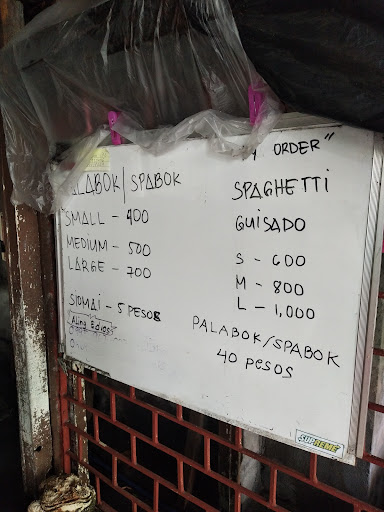 PALABOK/SPABOK
SMALL - 400
MEDIUM - 500
LARGE - 700
SIOMAI - 5 PESOS
Aling Edios
ORDER"
SPAGHETTI
GUISADO
S - 600
M - 800
L - 1,000
PALABOK/SPABOK
40 PESOS
SUPREME